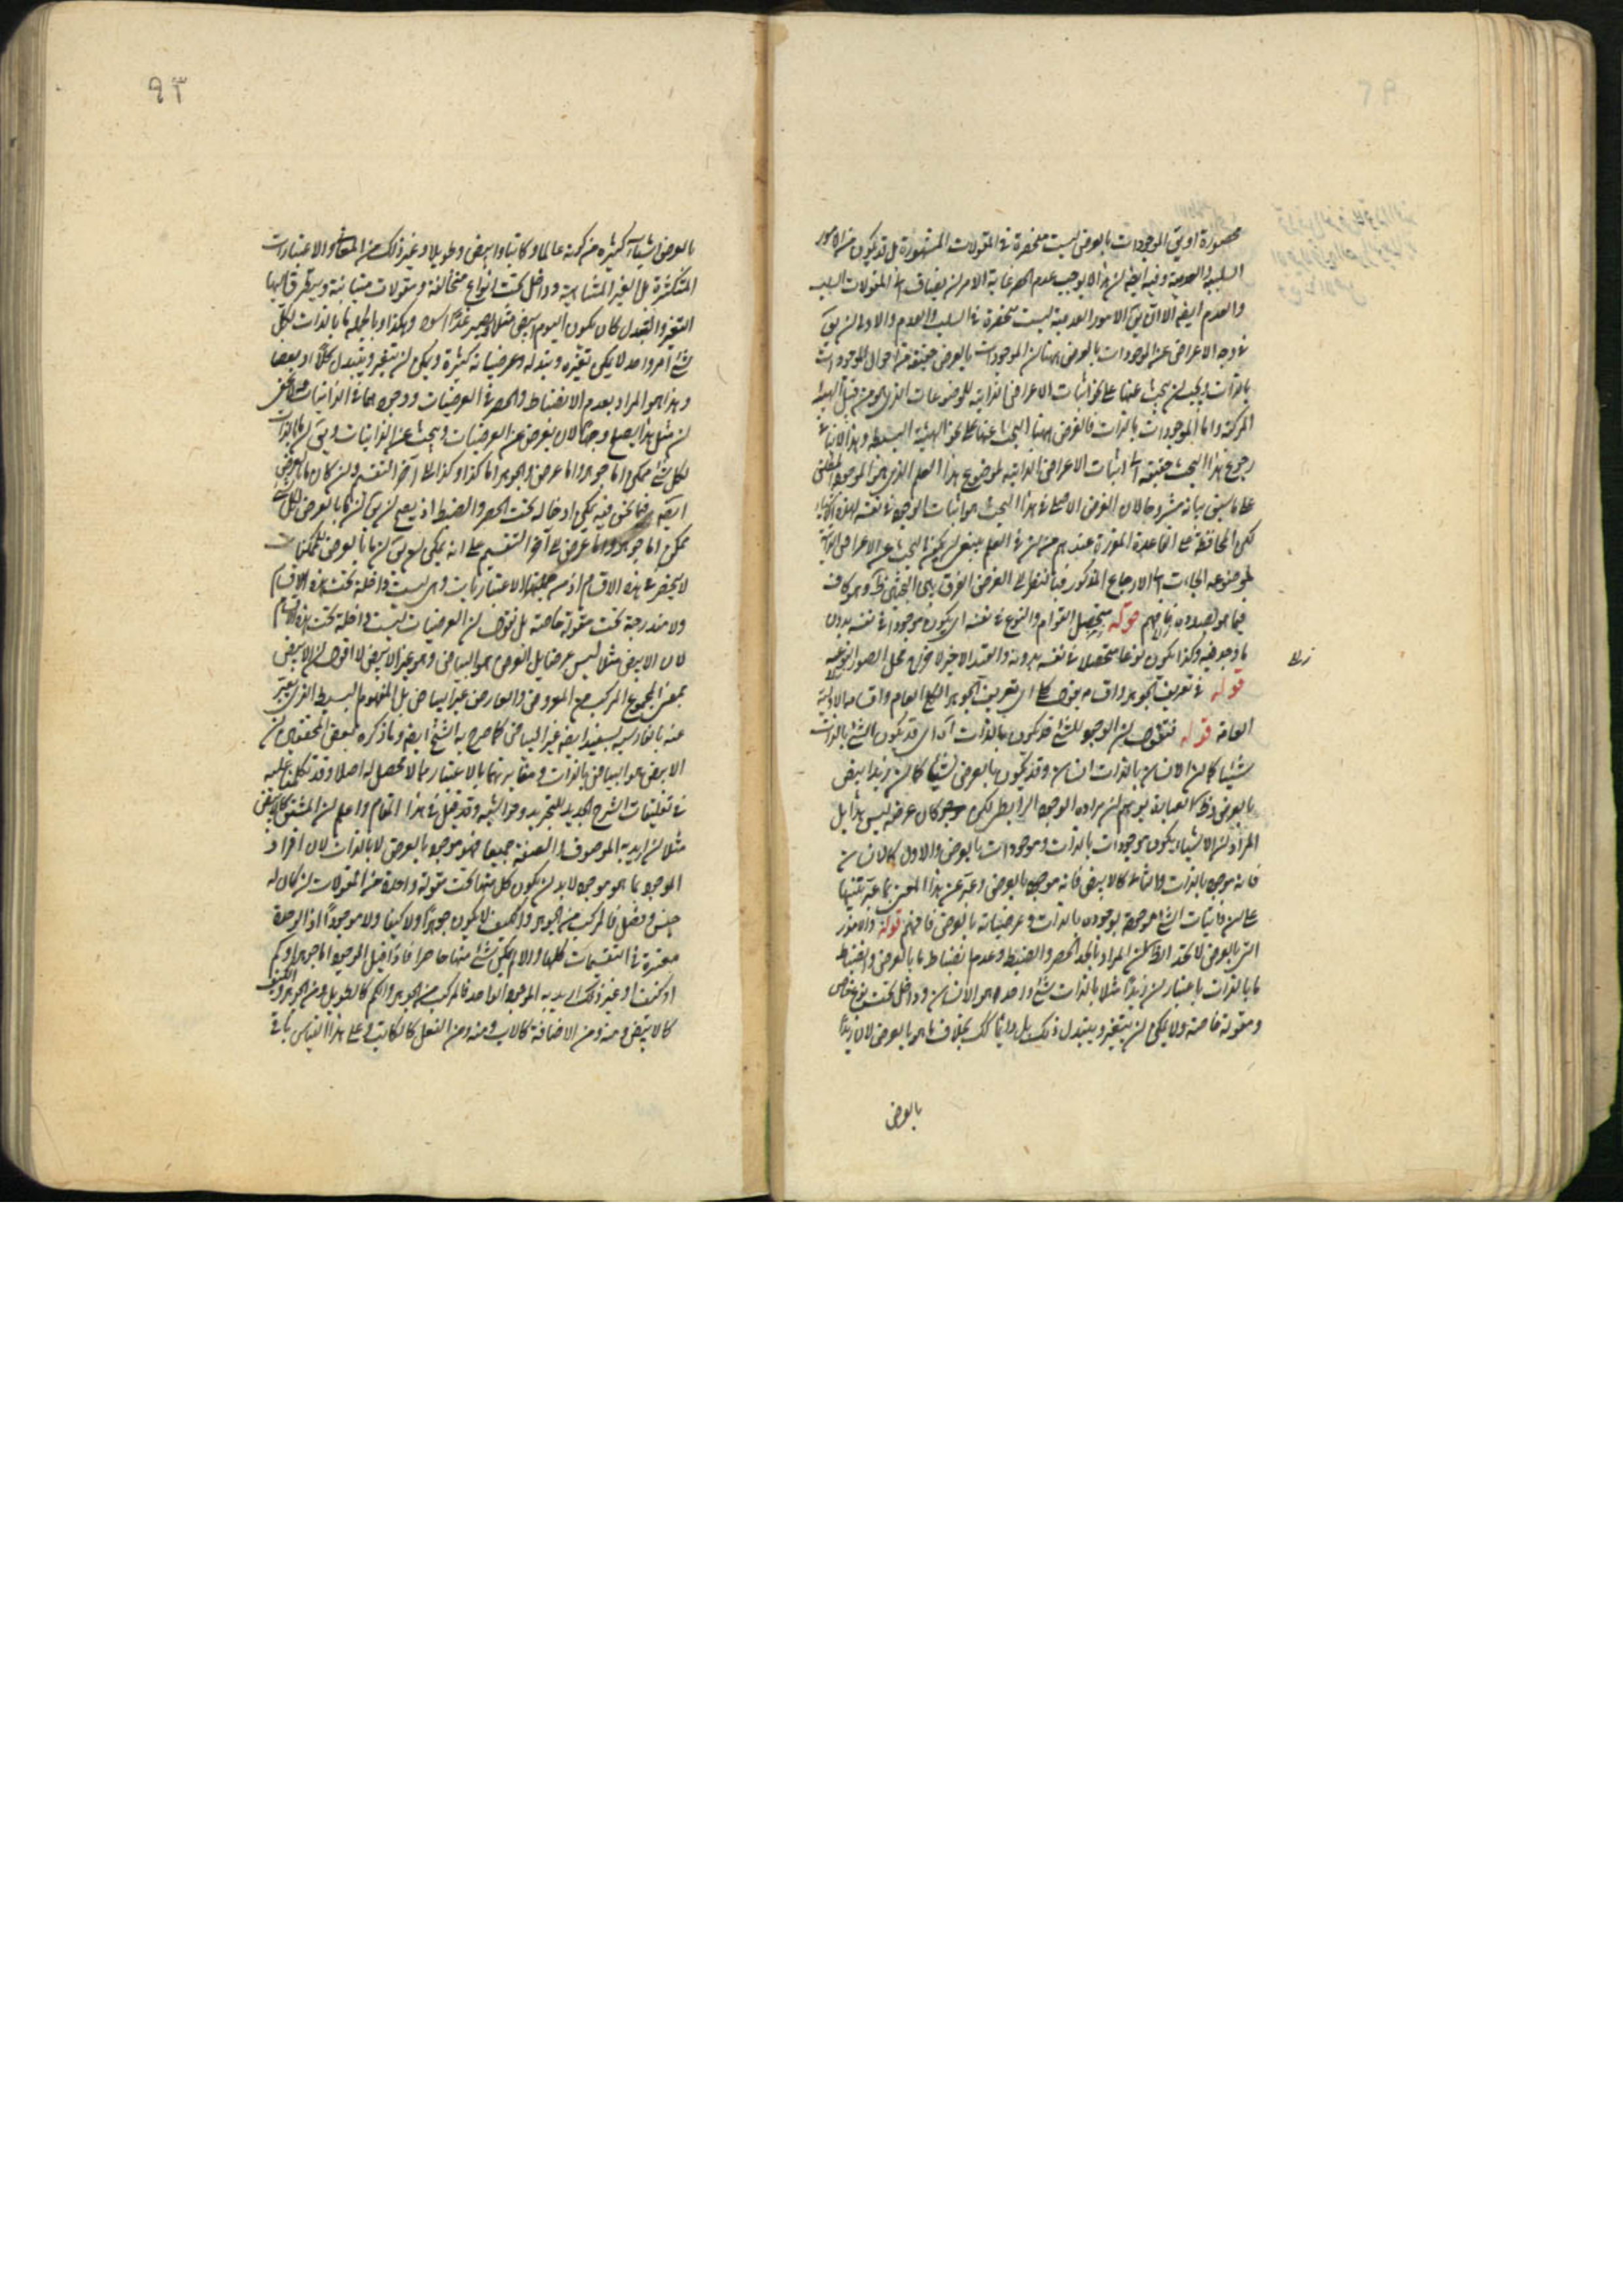 محصورة او يق الموجودات بالعرض ليست منحصرة في المقولات المشهورة بل قد يكون من الامور
السلبية والعدمية وفيه ايضا ان هذا لا يوجب عدم الحصر غاية الامر ان يضاف الى المقولات السلب
والعدم ايضا الا ان يق الامور العدمية ليست منحصرة في السلب والعدم والاولى ان يق
في وجه الاعراض عن الموجودات بالعرض ههنا ان الموجودات بالعرض حقيقة من احوال الموجودات
بالذات ويجب ان يبحث عنها على نحو اثبات الاعراض الذاتية للموضوعات الذي هو من قبيل الهلية
المركبة واما الموجودات بالذات فالغرض ههنا البحث عنها على نحو الهلية البسيطة وهذا لا ينافي
رجوع هذا البحث حقيقة الى اثبات الاعراض الذاتية لموضوع هذا العلم الذي هو الموجود المطلق
على ما سبق بيانه مشروحا لان الغرض الاصلي في هذا البحث هو اثبات الوجود في نفسه لهذه الاشياء
لكن المحافظة على القاعدة المقررة عندهم من ان في العلم ينبغي ان يكون البحث عن الاعراض الذاتية
لموضوعه الجاءت الى الارجاع المذكور فبالنظر الى الغرض الفرق بين البحثين ظ وهو كاف
فيما هو بصدده فافهم قوله متحصل القوام والنوع في نفسه اي يكون موجودا في نفسه بدون
ما وجد فيه وكذا يكون نوعا متحصلا في نفسه بدونه والقيد الاخير لاخراج محل الصور النوعية
قوله في تعريف الجوهر واقسامه بقول كلي اي تعريف الجوهر العام واقسامه الاولية
العامة قوله فنقول ان الوجود للشئ قد يكون بالذات اه اي قد يكون الشئ بالذات
شيئا كما ان الانسان بالذات انسان وقد يكون بالعرض شيئا كما ان زيدا ابيض
بالعرض وظ العبارة يوهم ان مراده الوجود الرابطي لكن ليس هذا بل
المراد ان الاشياء يكون موجودات بالذات وموجودات بالعرض والاول كالانسان
فانه موجود بالذات والثاني كالابيض فانه موجود بالعرض وعبر عن هذا المعنى بما عبر تنبيها
على ان ذاتيات الشئ موجودة بوجوده بالذات وعرضياته بالعرض فافهم قوله والامور
التي بالعرض لا تحد الظ ان المراد بالحد الحصر والضبط وعدم انضباط ما بالعرض وانضباط
ما بالذات باعتبار ان زيدا مثلا بالذات شئ واحد هو الانسان وداخل تحت نوع خاص
ومقولة خاصة ولا يمكن ان يتغير ويتبدل ذلك بل دائما كك بخلاف ما هو بالعرض لان زيدا
بالعرض
٩٣
بالعرض اشياء كثيرة من كونه عالما وكاتبا وابيض وطويلا وغير ذلك من المعاني والاعتبارات
المتكثرة بل الغير المتناهية وداخل تحت انواع متخالفة ومقولات متباينة ويتطرق اليها
التغير والتبدل كان يكون اليوم ابيض مثلا ويصير غدا اسود وهكذا وبالجملة ما بالذات لكل
شئ امر واحد لا يمكن تغيره وتبدله وعرضياته كثيرة ويمكن ان يتغير ويتبدل كلا او بعضا
وهذا هو المراد بعدم الانضباط والحصر في العرضيات ووجودهما في الذاتيات
ان مثل هذا يصلح وجها لان يعرض عن العرضيات ويبحث عن الذاتيات ويق ان ما بالذات
لكل شئ ممكن اما جوهر واما عرض والجوهر اما كذا وكذا الى آخر التقسيم وان كان ما بالعرض
ايضا فيما نحن فيه يمكن ادخاله تحت الحصر والضبط اذ يصح ان يق ان ما بالعرض لكل شئ
ممكن اما جوهر واما عرض الى آخر التقسيم على انه يمكن ان يق ان ما بالعرض للممكنات
لا ينحصر في هذه الاقسام اذ من جملتها الاعتباريات وهي ليست داخلة تحت هذه الاقسام
ولا مندرجة تحت مقولة خاصة بل نقول ان العرضيات ليست داخلة تحت هذه الاقسام
لان الابيض مثلا ليس عرضا بل العرض هو البياض وهو غير الابيض لا اقول ان الابيض
بمعنى المجموع المركب من المعروض والعارض غير البياض بل المفهوم البسيط الذي يعبر
عنه بالفارسية بسفيد ايضا غير البياض كما صرح به الشيخ ايضا وما ذكره بعض المحققين من ان
الابيض هو البياض بالذات ومغايرتهما بالاعتبار مما لا محصل له اصلا وقد تكلمنا عليه
في تعليقات الشرح الجديد للتجريد وحواشيه وقد قيل في هذا المقام واعلم ان المشتق كالابيض
مثلا ان اريد به الموصوف والصفة جميعا فهو موجود بالعرض لا بالذات لان افراد
الموجود بما هو موجود لا بد ان يكون كل منها تحت مقولة واحدة من المقولات ان كان له
جنس وفصل فالمركب من الجوهر والكيف لا يكون جوهرا ولا كيفا ولا موجودا اذ الوحدة
معتبرة في التقسيمات كلها والا لم يكن شئ منها حاصرا فاذا قيل الموجود اما جوهر او كم
او كيف او غير ذلك اريد به الموجود الواحد فالمركب من الجوهر والكم كالطويل ومن الجوهر والكيف
كالابيض ومنه ومن الاضافة كالاب ومنه ومن الفعل كالكاتب وعلى هذا القياس باقي